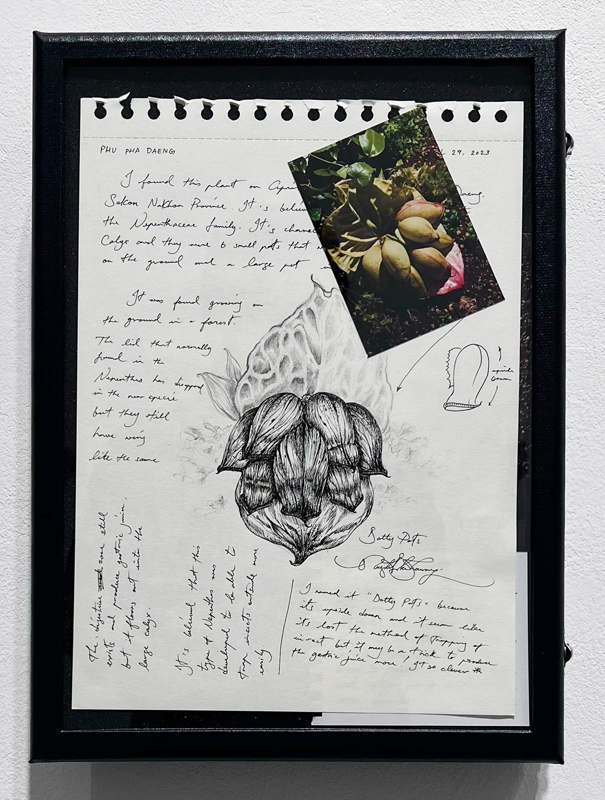 PHU PHA DAENG
29, 2023
I found this plant on Daeng
Sakon Nakhon Province. It's
the Nepenthaceae family. It's
Calyx and they were 6 small pots that
on the ground and a large pot
It was found growing on
the ground in a forest.
The lid that normally
found in the
Nepenthes has dropped
in the new specie
but they still
have wing
like the same
upside
down
The digestive zone still
exists and produce gastric juice
but it flows out into the
large calyx.
It is believed that this
type of Nepenthes was
developed to be able to
trap insects outside more
easily
Dolly Pots
I named it "Dolly Pots" because
its upside down and it seem like
its lost the method of Trapping of
insect but it may be a trick to produce
the gastric juice more / It so clever